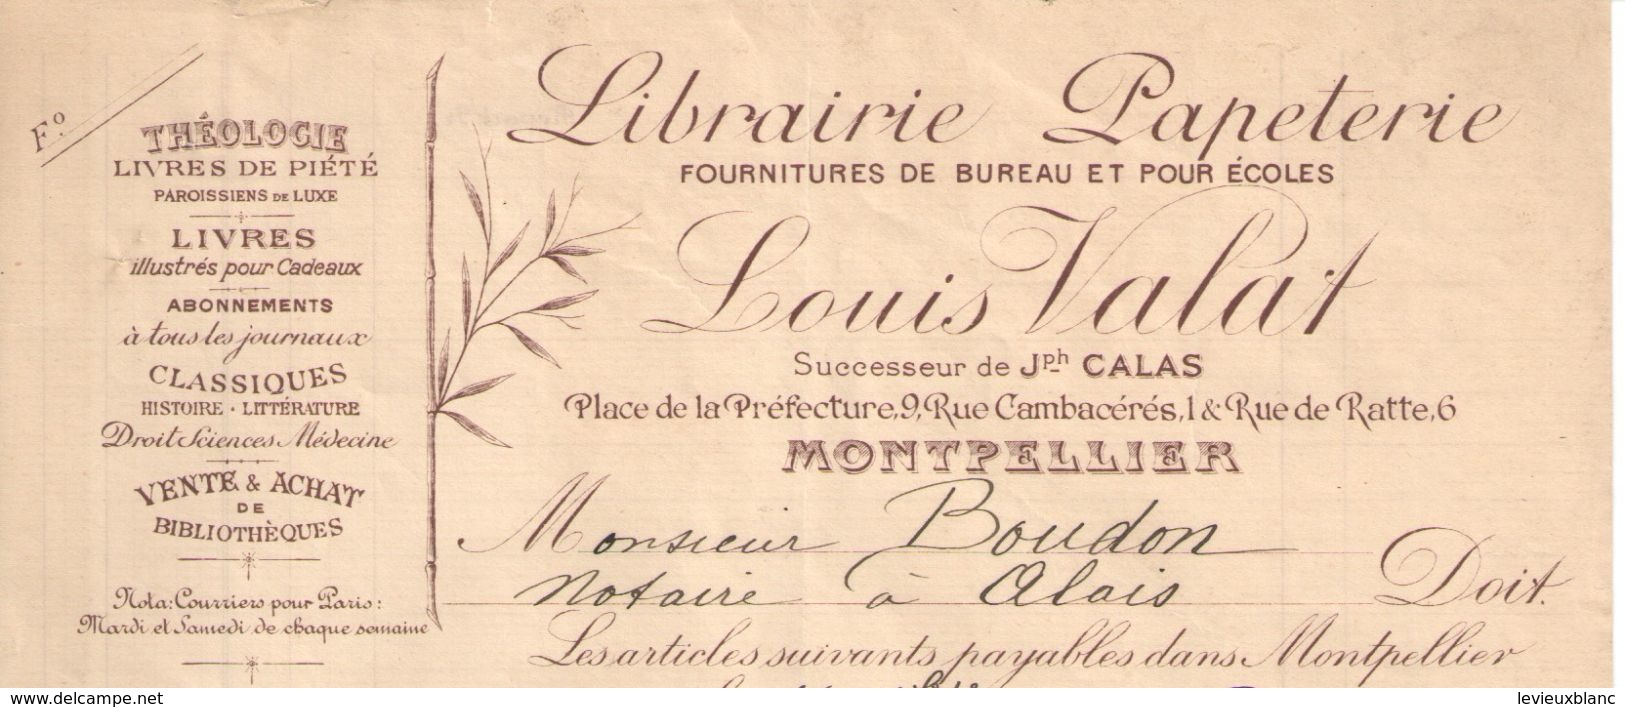 Fº
THÉOLOGIE
LIVRES DE PIÉTÉ
PAROISSIENS DE LUXE
LIVRES
illustrés pour Cadeaux
ABONNEMENTS
à tous les journaux
CLASSIQUES
HISTOIRE · LITTÉRATURE
Droit Sciences Médecine
VENTE & ACHAT
DE
BIBLIOTHÈQUES
Nota: Courriers pour Paris:
Mardi et Samedi de chaque semaine
Librairie Papeterie
FOURNITURES DE BUREAU ET POUR ÉCOLES
Louis Valat
Successeur de Jph CALAS
Place de la Préfecture, 9, Rue Cambacérés, 1 & Rue de Ratte, 6
MONTPELLIER
Monsieur Boudon
notaire à Alais Doit.
Les articles suivants payables dans Montpellier
www.delcampe.net
levieuxblanc